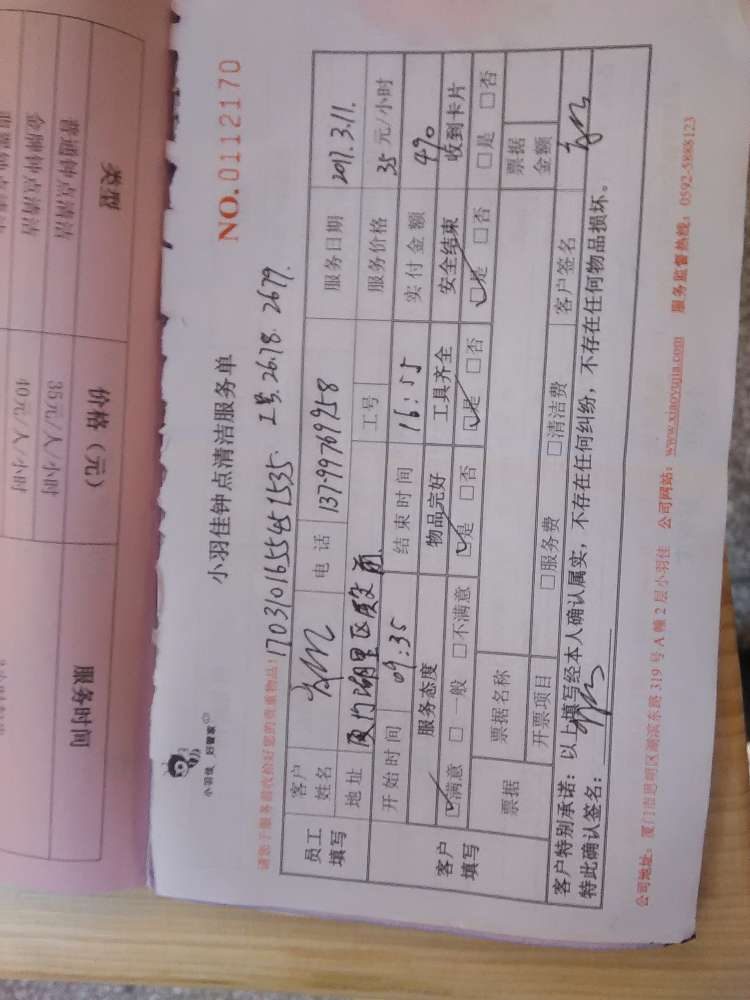 小羽佳 好管家
小羽佳钟点清洁服务单
NO.0112170
请您于服务前收拾好您的贵重物品!
工号.2678.2679.
员工填写 客户姓名 电话 137-99769758 服务日期 2017.3.11.
地址 厦门湖里区 工号 服务价格 35 元/小时
开始时间 09:35 结束时间 16:55 实付金额 490
客户填写 服务态度 物品完好 工具齐全 安全结束 收到卡片
☑满意 □一般 □不满意 ☑是 □否 ☑是 □否 ☑是 □否 □是 □否
票据 票据名称 票据金额
开票项目 □服务费 □清洁费 客户签名
客户特别承诺:以上填写经本人确认属实,不存在任何纠纷,不存在任何物品损坏。
特此确认签名:
公司地址:厦门市思明区湖滨东路 319 号 A 幢 2 层小羽佳 公司网站:www.xiaoyujia.com 服务监督热线:0592-5888123
类型 价格(元) 服务时间
普通钟点清洁 35元/人/小时
金牌钟点清洁 40元/人/小时